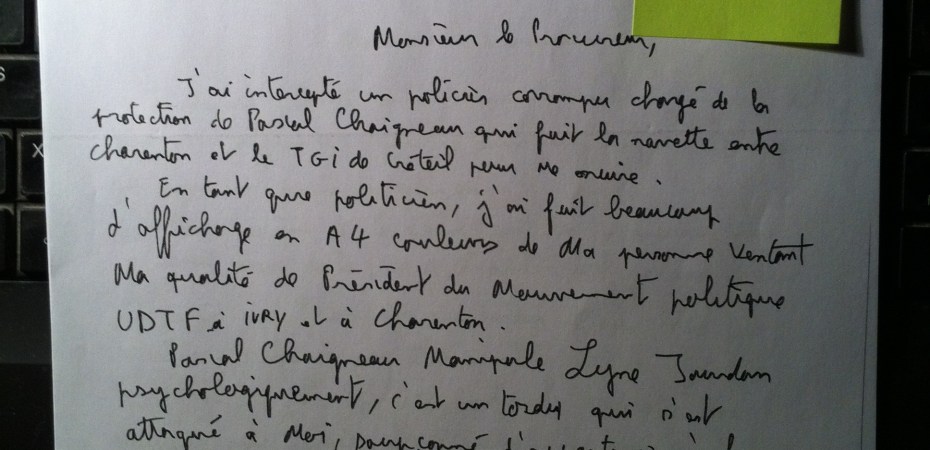 Monsieur le Procureur,
J'ai intercepté un policier corrompu chargé de la
protection de Pascal Chaigneau qui fait la navette entre
charenton et le TGi de Créteil pour me nuire.
En tant que politicien, j'ai fait beaucoup
d'affichage en A4 couleurs de Ma personne Ventant
Ma qualité de Président du Mouvement politique
UDTF à iVRY et à Charenton.
Pascal Chaigneau Manipule Lyne Jourdan
psychologiquement, c'est un tordu qui s'est
attaqué à Moi,
X